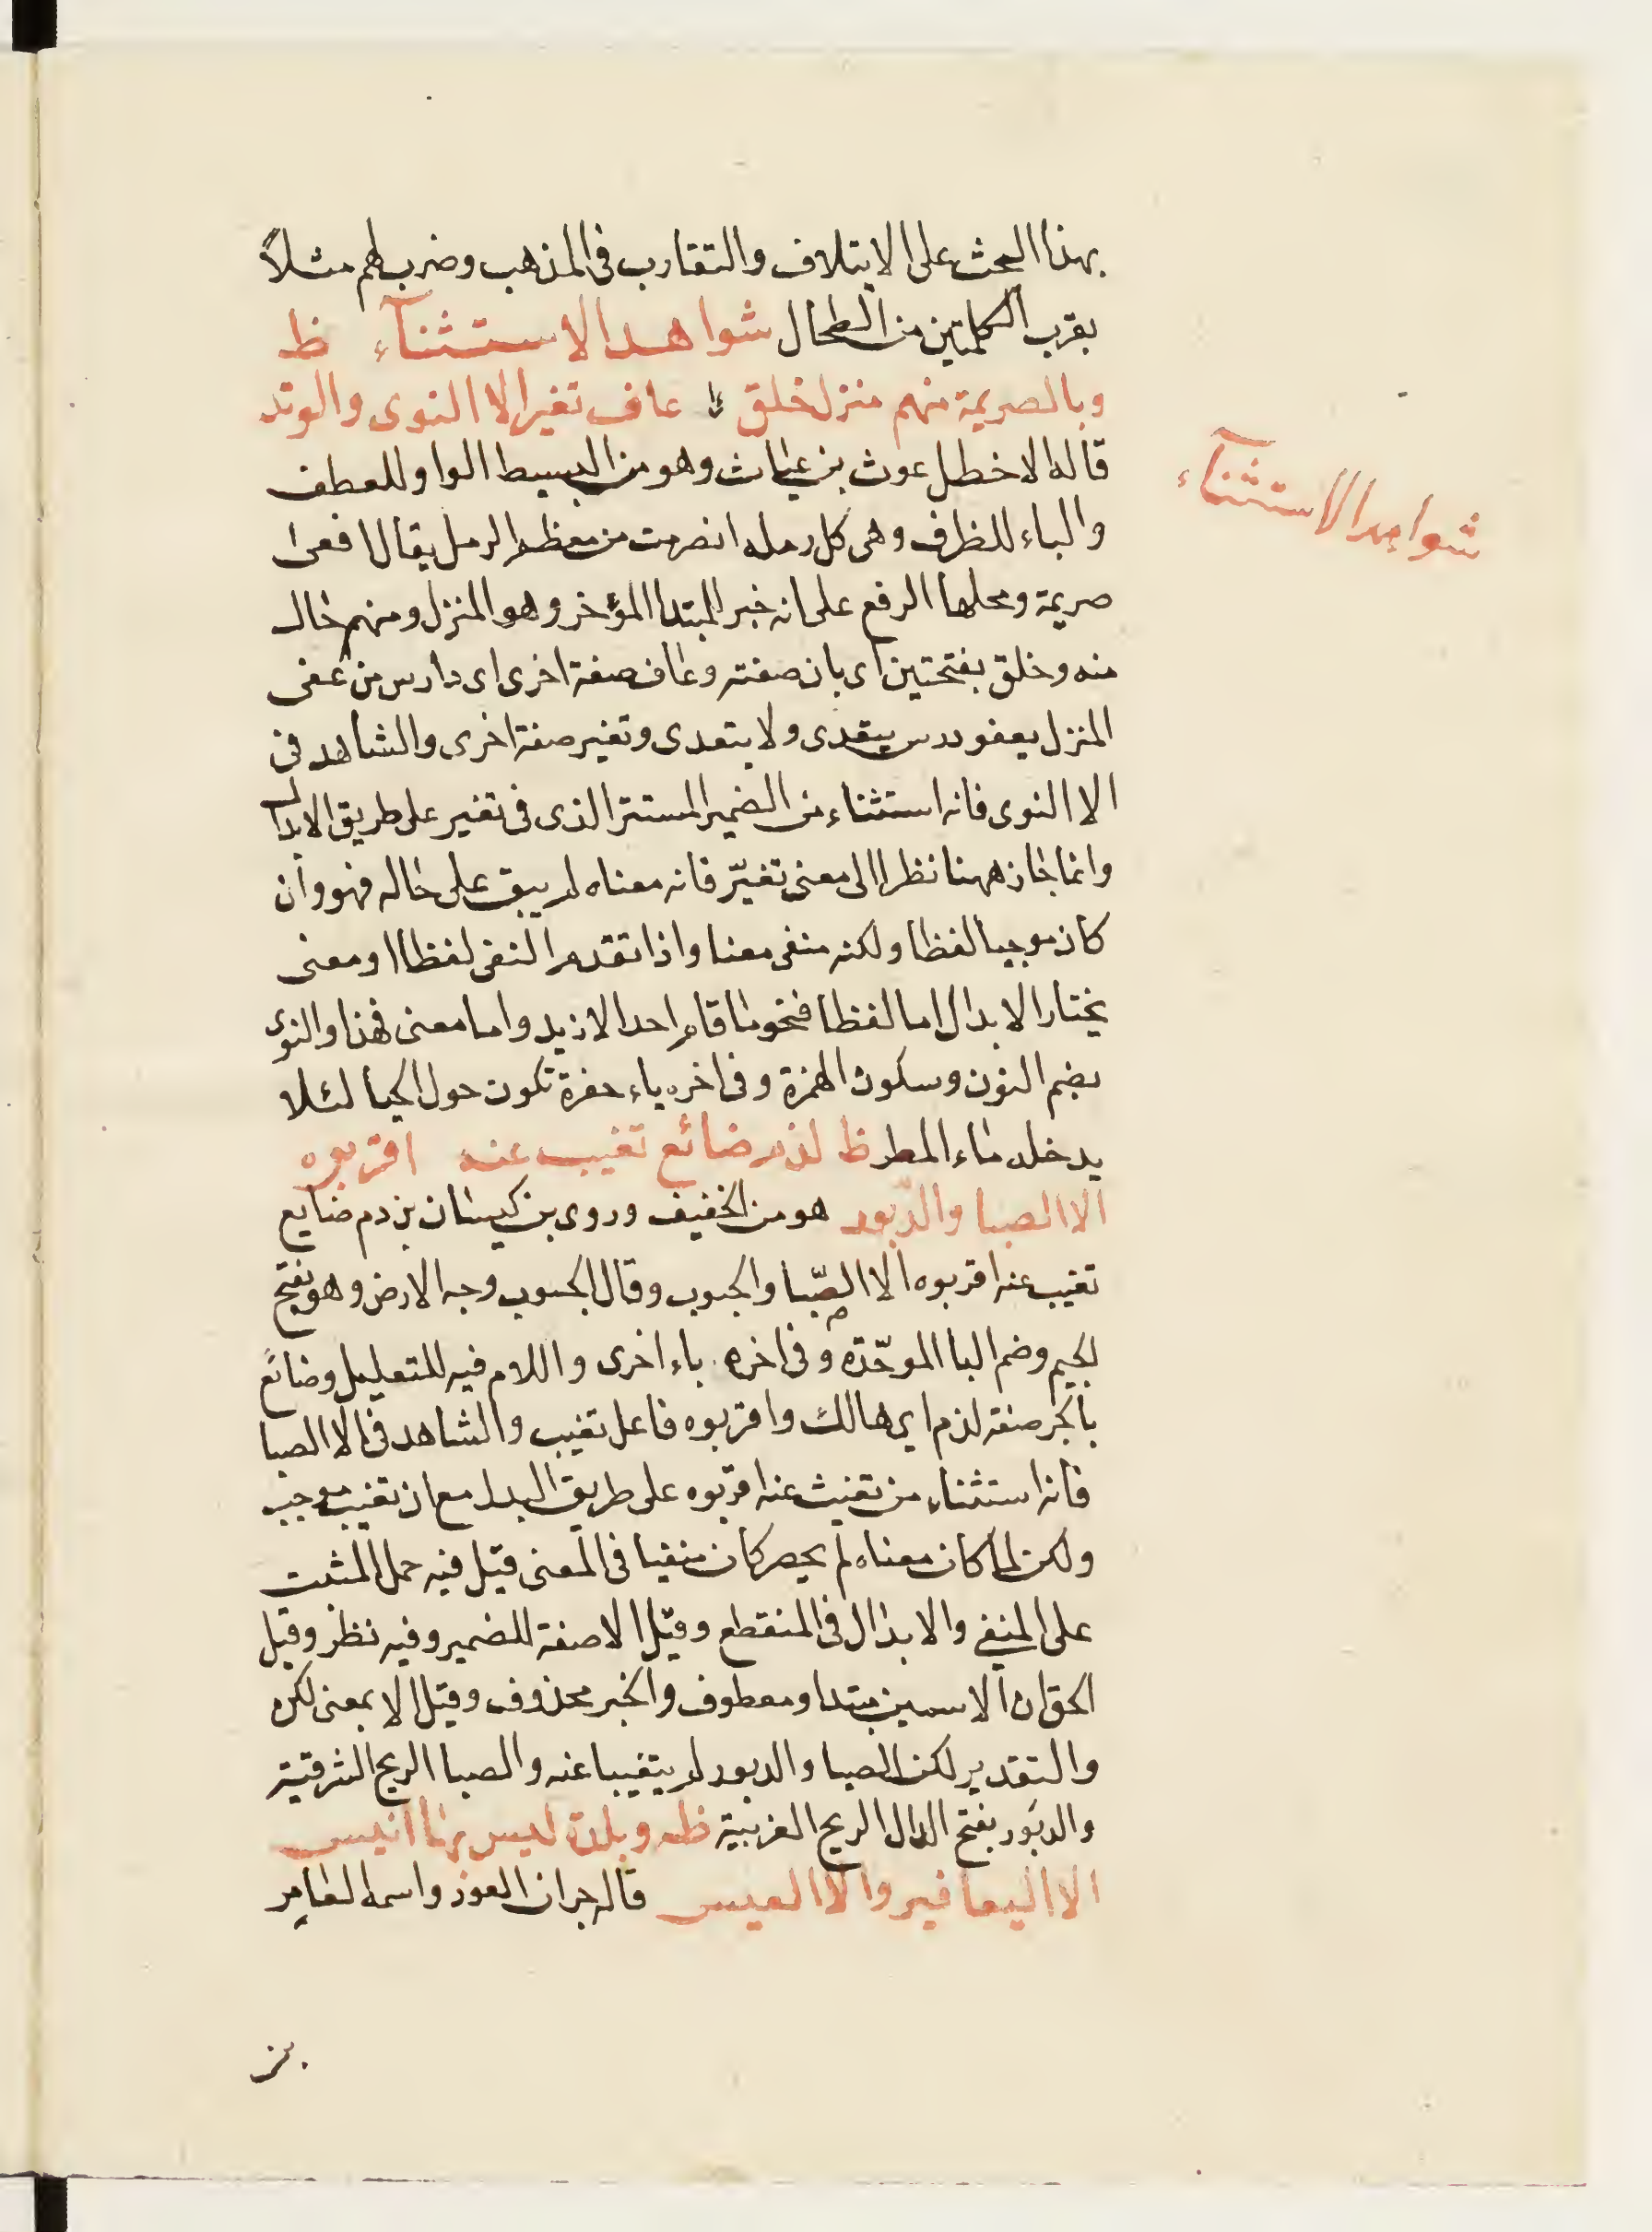 بهذا البحث على الايتلاف والتقارب فى المذهب وضرب لهم مثلاً
بقرب الكليتين من الطحال شواهد الاستثنآء ظ
وبالصريمة منهم منزل خلق عاف تغير الا النوى والوتد
شواهد الاستثنآء
قاله الاخطل غوث بن غياث وهو من البسيط الواو للعطف
والباء للظرف وهى كل رملة انصرمت من معظم الرمل يقال افعى
صريمة ومحلها الرفع على انه خبر المبتدا المؤخر وهو المنزل ومنهم حال
منه وخلق بفتحتين اى بان صفته وعاف صفة اخرى اى دارس من عفى
المنزل يعفو درس يتعدى ولا يتعدى وتغير صفة اخرى والشاهد فى
الا النوى فانه استثناء من الضمير المستتر الذى فى تغير على طريق الابدال
وانما جاز ههنا نظرا الى معنى تغيّر فانه معناه لم يبق على حاله فهو وان
كان موجبا لفظا ولكنه منفى معنا واذا تقدم النفى لفظا او معنى
يختار الابدال اما لفظا فنحو ما قام احد الا زيد واما معنى فهذا والنوى
بضم النون وسكون الهمزة وفى اخره ياء حفرة تكون حول الخبا لئلا
يدخله ماء المطر ظ لدم ضائع تغيب عنه اقربوه
الا الصبا والدّبور هو من الخفيف وروى بن كيسان بن دم ضايع
تغيب عنه اقربوه الا الصّبا والجبوب وقال الجبوب وجه الارض وهو بفتح
لجيم وضم البا الموحّدة وفى اخره باء اخرى واللام فيه للتعليل وضائع
بالجر صفة لدم اى هالك واقربوه فاعل تغيب والشاهد فى الا الصبا
فانه استثناء من تغيب عنه اقربوه على طريق البدل مع ان تغيب موجب
ولكن لما كان معناه لم يحضر كان منفيا فى المعنى قيل فيه حمل المثبت
على المنفي والابدال فى المنقطع وقيل الا صفة للضمير وفيه نظر وقيل
الحق ان الاسمين مبتدا ومعطوف والخبر محذوف وقيل الا بمعنى لكن
والتقدير لكن الصبا والدبور لم يتغيبا عنه والصبا الريح الشرقية
والدبَور بفتح الدال الريح الغربية ظه وبلدة ليس بها انيس
الا اليعافير والا العيس قاله جران العود واسمه العامر
بن